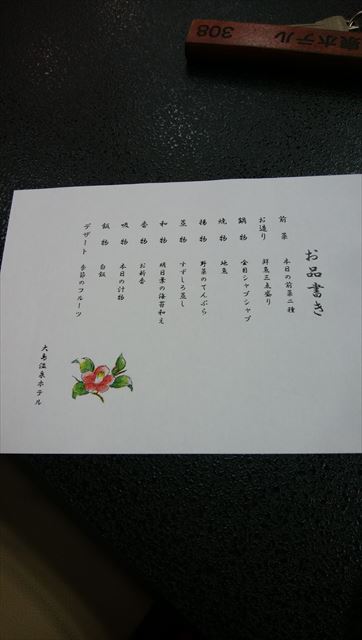 お品書き
前菜 本日の前菜二種
お造り 鮮魚三点盛り
鍋物 金目シャブシャブ
焼物 地魚
揚物 野菜のてんぷら
蒸物 すずしろ蒸し
和物 明日葉の海苔和え
香物 お新香
吸物 本日の汁物
飯物 白飯
デザート 季節のフルーツ
大島温泉ホテル
泉ホテル 308